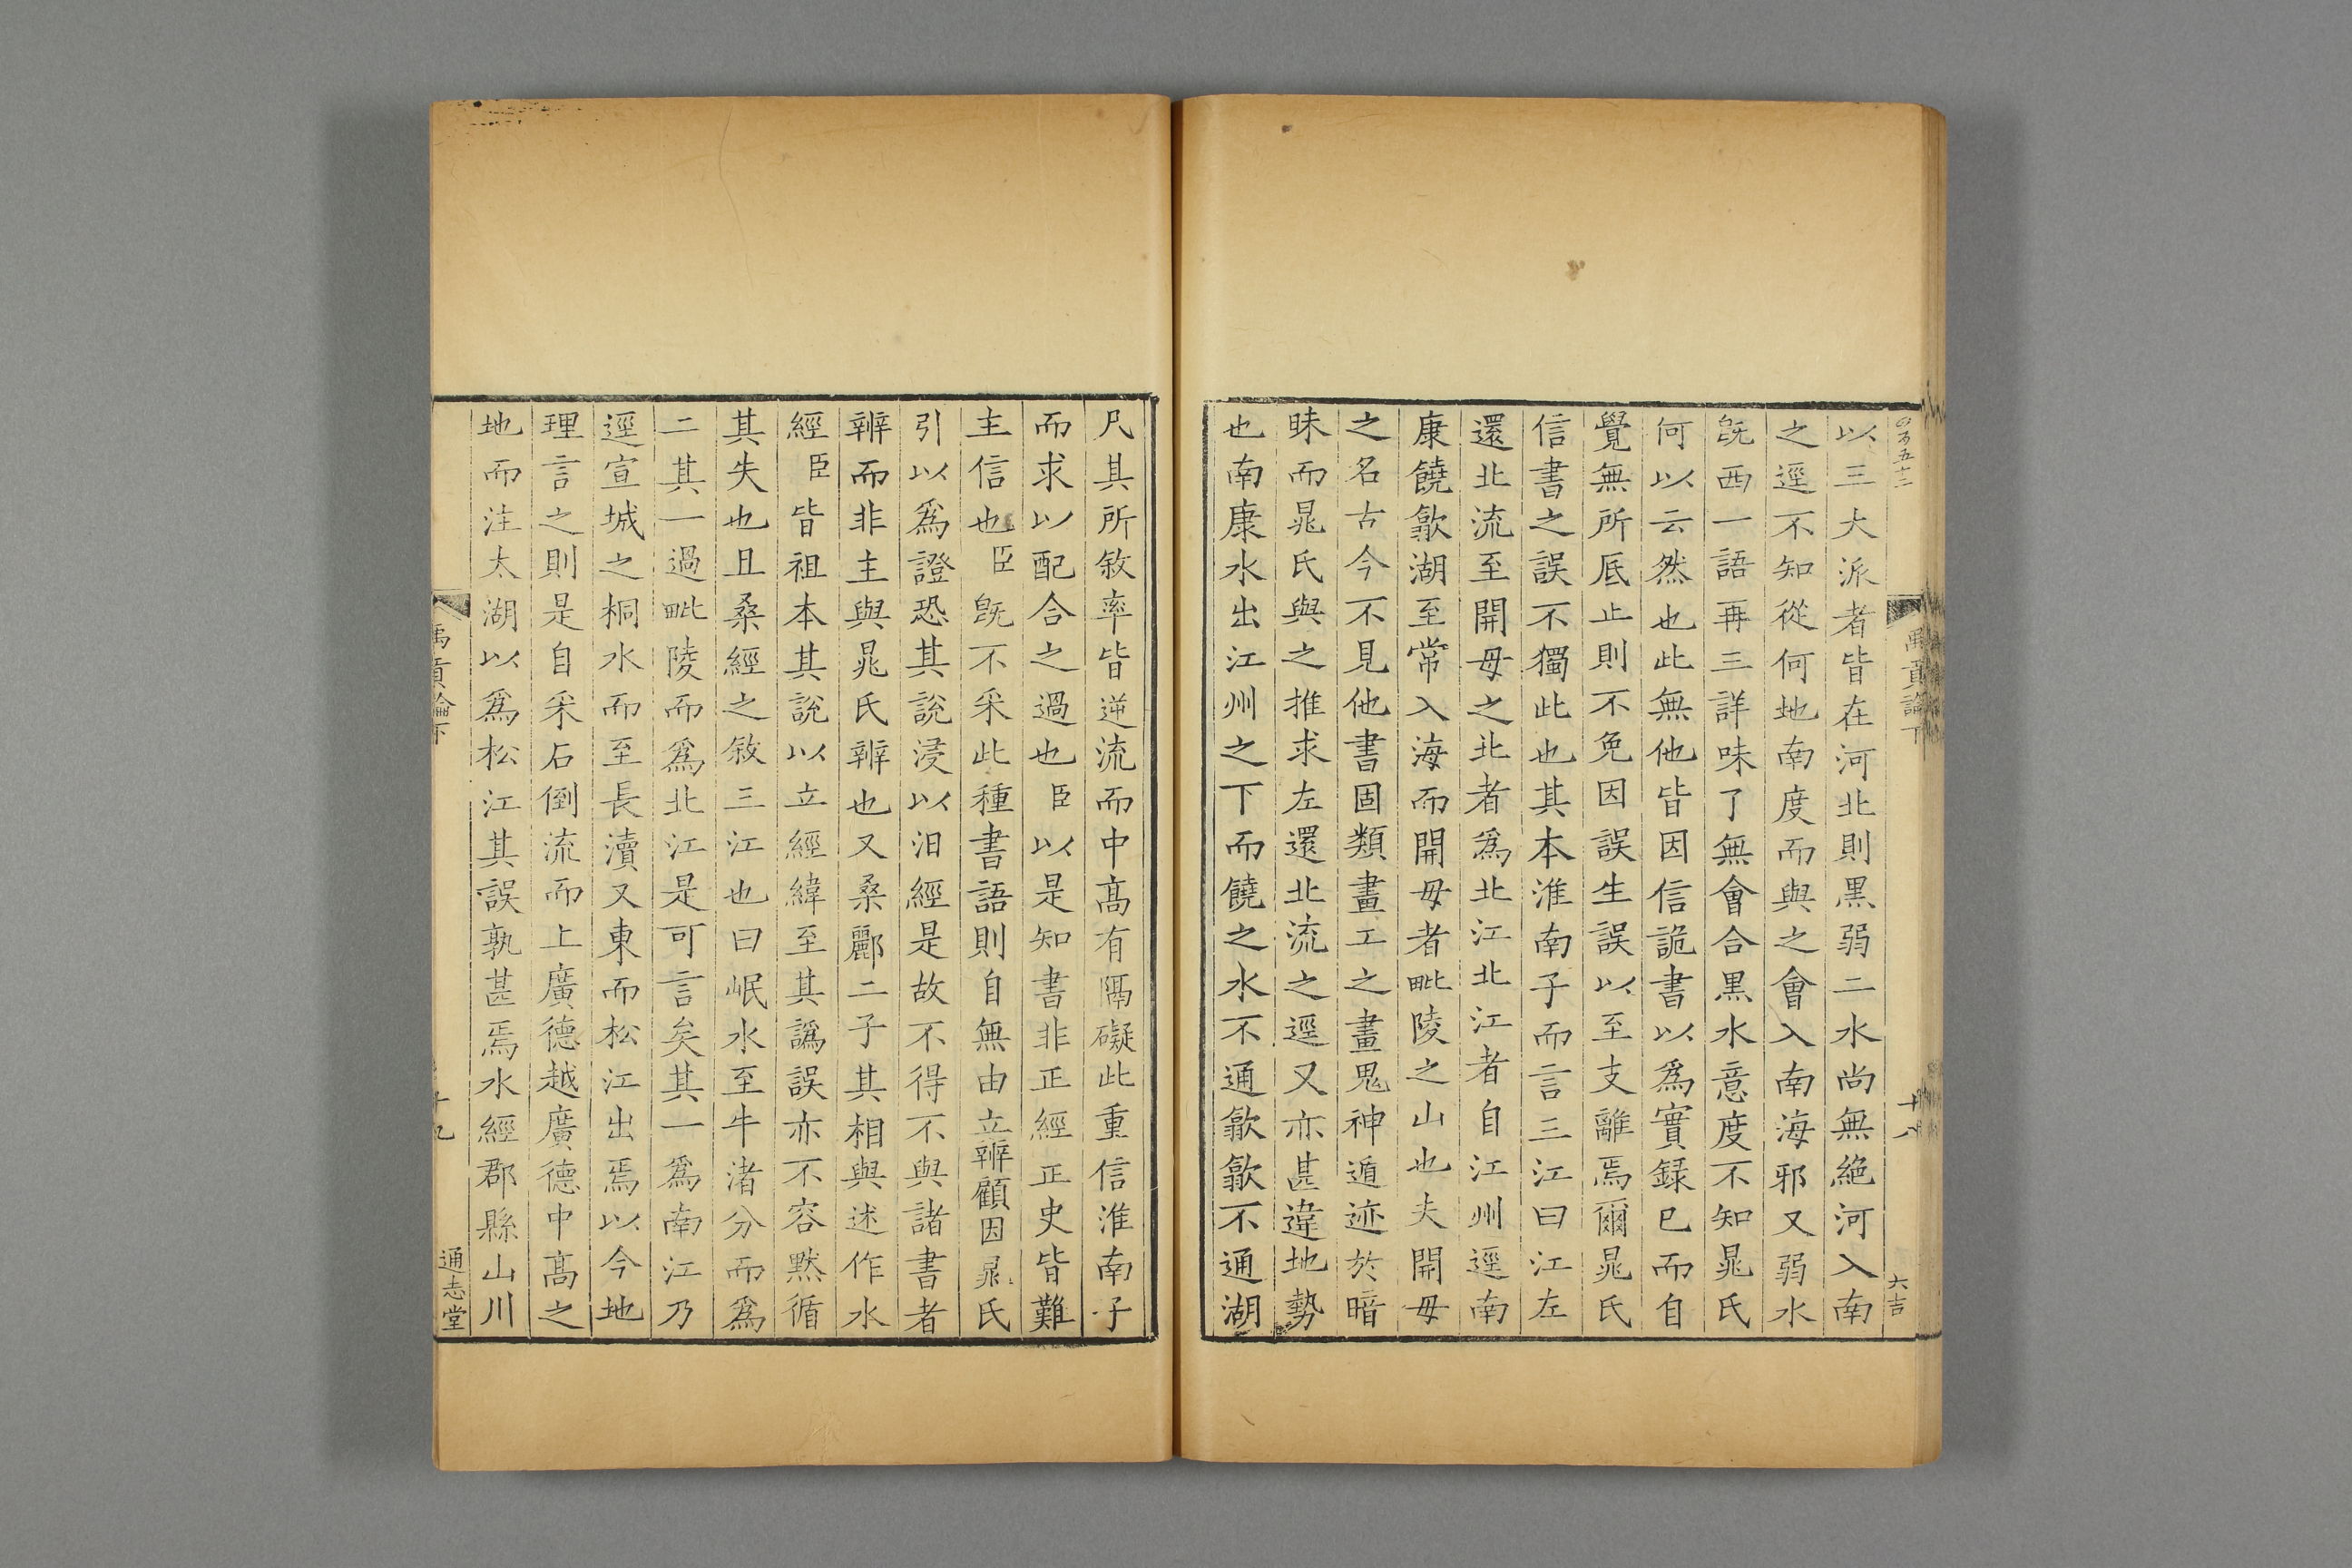 禹貢論下
十八
六吉
以三大派者皆在河北則黒弱二水尚無絶河入南
之逕不知從何地南度而與之會入南海邪又弱水
旣西一語再三詳味了無會合黒水意度不知晁氏
何以云然也此無他皆因信詭書以爲實録已而自
覺無所厎止則不免因誤生誤以至支離焉爾晁氏
信書之誤不獨此也其本淮南子而言三江曰江左
還北流至開母之北者爲北江北江者自江州逕南
康饒歙湖至常入海而開母者毗陵之山也夫開母
之名古今不見他書固類畫工之畫鬼神遁迹於暗
昧而晁氏與之推求左還北流之逕又亦甚違地勢
也南康水出江州之下而饒之水不通歙歙不通湖
凡其所敘率皆逆流而中髙有隔礙此重信淮南子
而求以配合之過也臣以是知書非正經正史皆難
主信也臣旣不采此種書語則自無由立辨顧因晁氏
引以爲證恐其說浸以汨經是故不得不與諸書者
辨而非主與晁氏辨也又桑酈二子其相與述作水
經臣皆祖本其說以立經緯至其譌誤亦不容黙循
其失也且桑經之敘三江也曰岷水至牛渚分而爲
二其一過毗陵而爲北江是可言矣其一爲南江乃
逕宣城之桐水而至長瀆又東而松江出焉以今地
理言之則是自采石倒流而上廣德越廣德中髙之
地而注太湖以爲松江其誤孰甚焉水經郡縣山川
禹貢論下
十九
通志堂